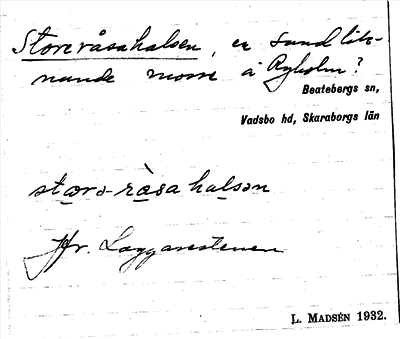 Storeråsahalsen, er sund lik-
nande mosse å Ryholm?
Beatebergs sn,
Vadsbo hd, Skaraborgs län
stɷrɷ-rɑ̀sa halsən
Jfr. Laggarestenen
L. MADSÉN 1932.